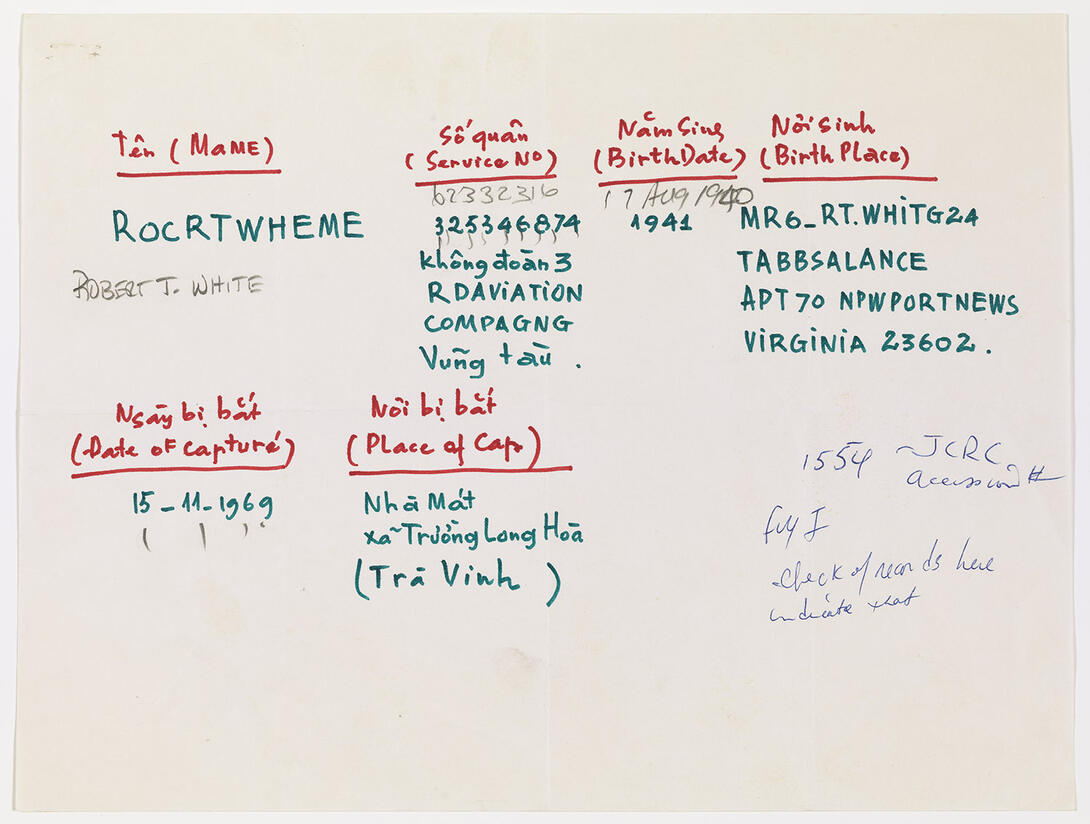 Tên (NAME)
Số quân
(Service Nº)
Năm Sinh
(BirthDate)
Nơi sinh
(Birth Place)
62332316
17 AUG 1940
ROCRTWHEME
325346874
1941
MR6_RT.WHITG24
ROBERT T. WHITE
Không đoàn 3
TABBSALANCE
RDAVIATION
APT 70 NPWPORTNEWS
COMPAGNG
VIRGINIA 23602.
Vũng tàu.
Ngày bị bắt
(Date of capture)
Nơi bị bắt
(Place of Cap)
15-11-1969
Nhà Mát
xã Trường Long Hoà
(Trà Vinh)
1554 ~JCRC
accession #
fyi
check of records here
indicate that